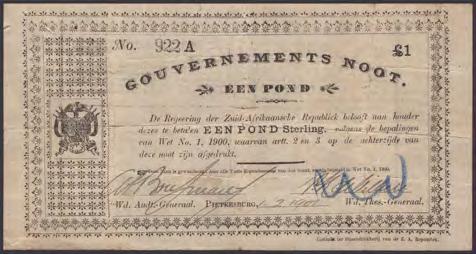 No. 922 A £1
GOUVERNEMENTS NOOT.
EEN POND
De Regeering der Zuid-Afrikaansche Republiek belooft aan houder
dezes te betalen EEN POND Sterling, volgens de bepalingen
van Wet No. 1, 1900, waarvan artt. 2 en 3 op de achterzijde van
deze noot zijn afgedrukt.
Wd. Audt.-Generaal. PIETERSBURG, Wd. Thes.-Generaal.